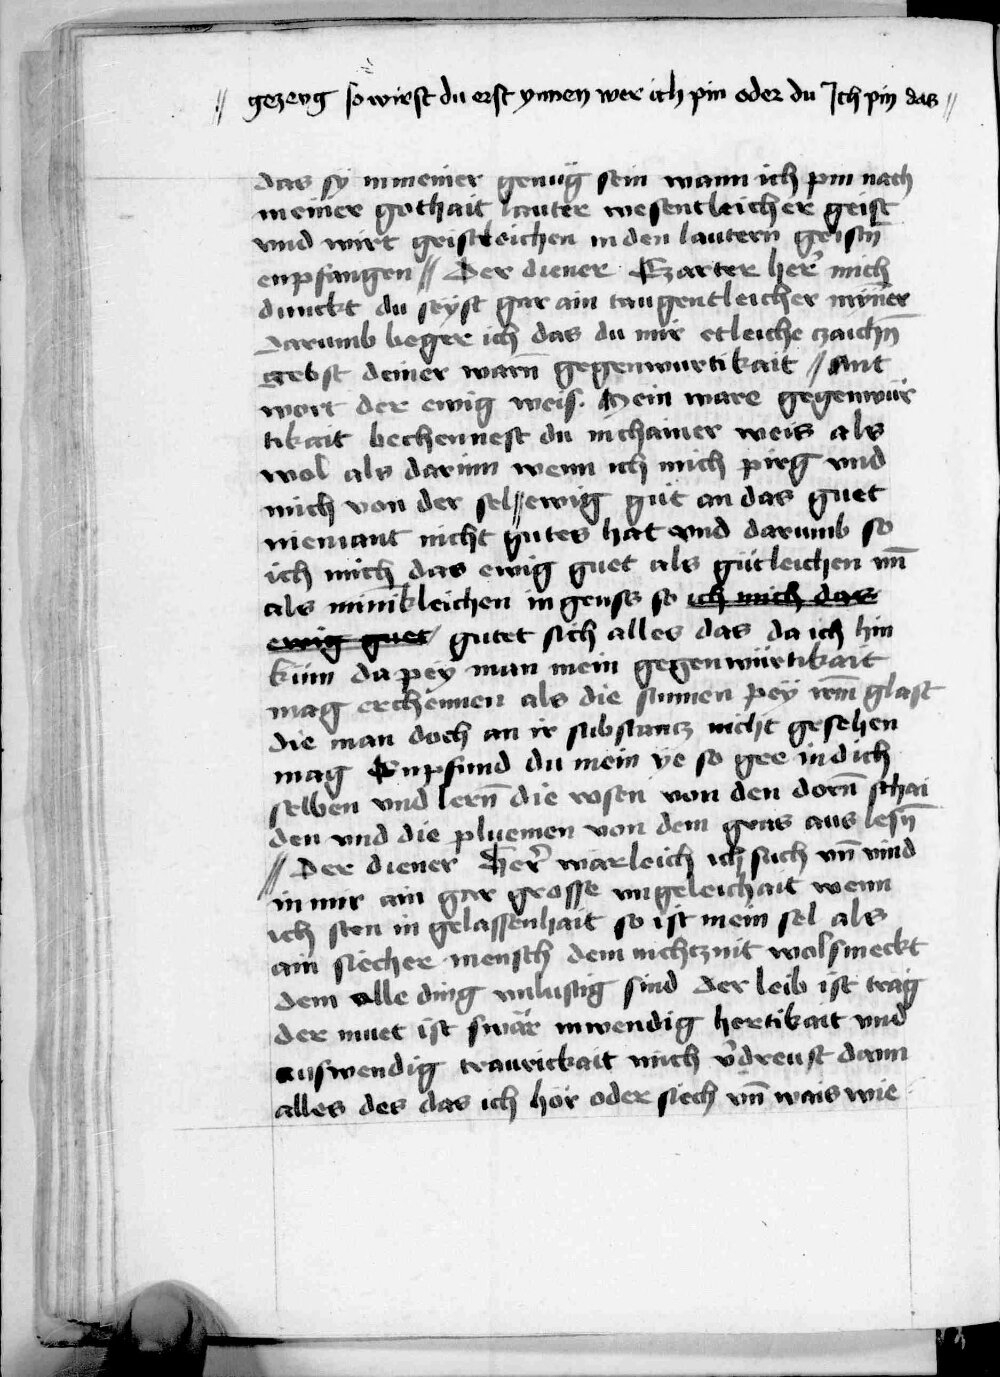 // gezeug so wirst du erst ynnen wer ich pin oder du Ich pin das //
das sy in meiner genüg sein wann ich pin nach
meiner gothait lauter wesentleicher geist
vnd wirt geistleichen in den lautern geistn̄
enpfangen // Der diener Czarter her̄ mich
dunckt du seyst gar ain taugentleicher mÿner
Darumb beger ich das du mir etleiche czaichn̄
gebst deiner warn̄ gegenwurtikait // Ant
wort der ewig weis. Mein ware gegenwür
tikait bechennest du in chainer weis als
wol als darinn wenn ich mich pirg vnd
mich von der sel // ewig güt an das guet
niemant nicht gutes hat vnd darumb so
ich mich das ewig guet als gütleichen vn̄
als minikleichen in geuss so ich mich das
ewig guet gutet sich alles das da ich hin
küm da pey man mein gegenwürtikait
mag erchennen als die sunnen pëy irm̄ glast
die man doch an ir substantz nicht gesehen
mag Enpfund du mein ÿe so gee in dich
selben vnd lern̄ die rosen von den dorn̄ schai
den vnd die pluemen von dem gras aus lesn̄
// Der diener Her̄ warleich ich such vn̄ vind
in mir ain gar grosse vngeleichait wenn
ich sten in gelassenhait so ist mein sel als
ain siecher mensch dem nichtznit wolsmeckt
dem alle ding vnlustig sind Der leib ist träg
der muet ist swär inwendig hertikait vnd
auswendig traurickait mich v̄dreust dann
alles des das ich hör oder siech vn̄ wais wie